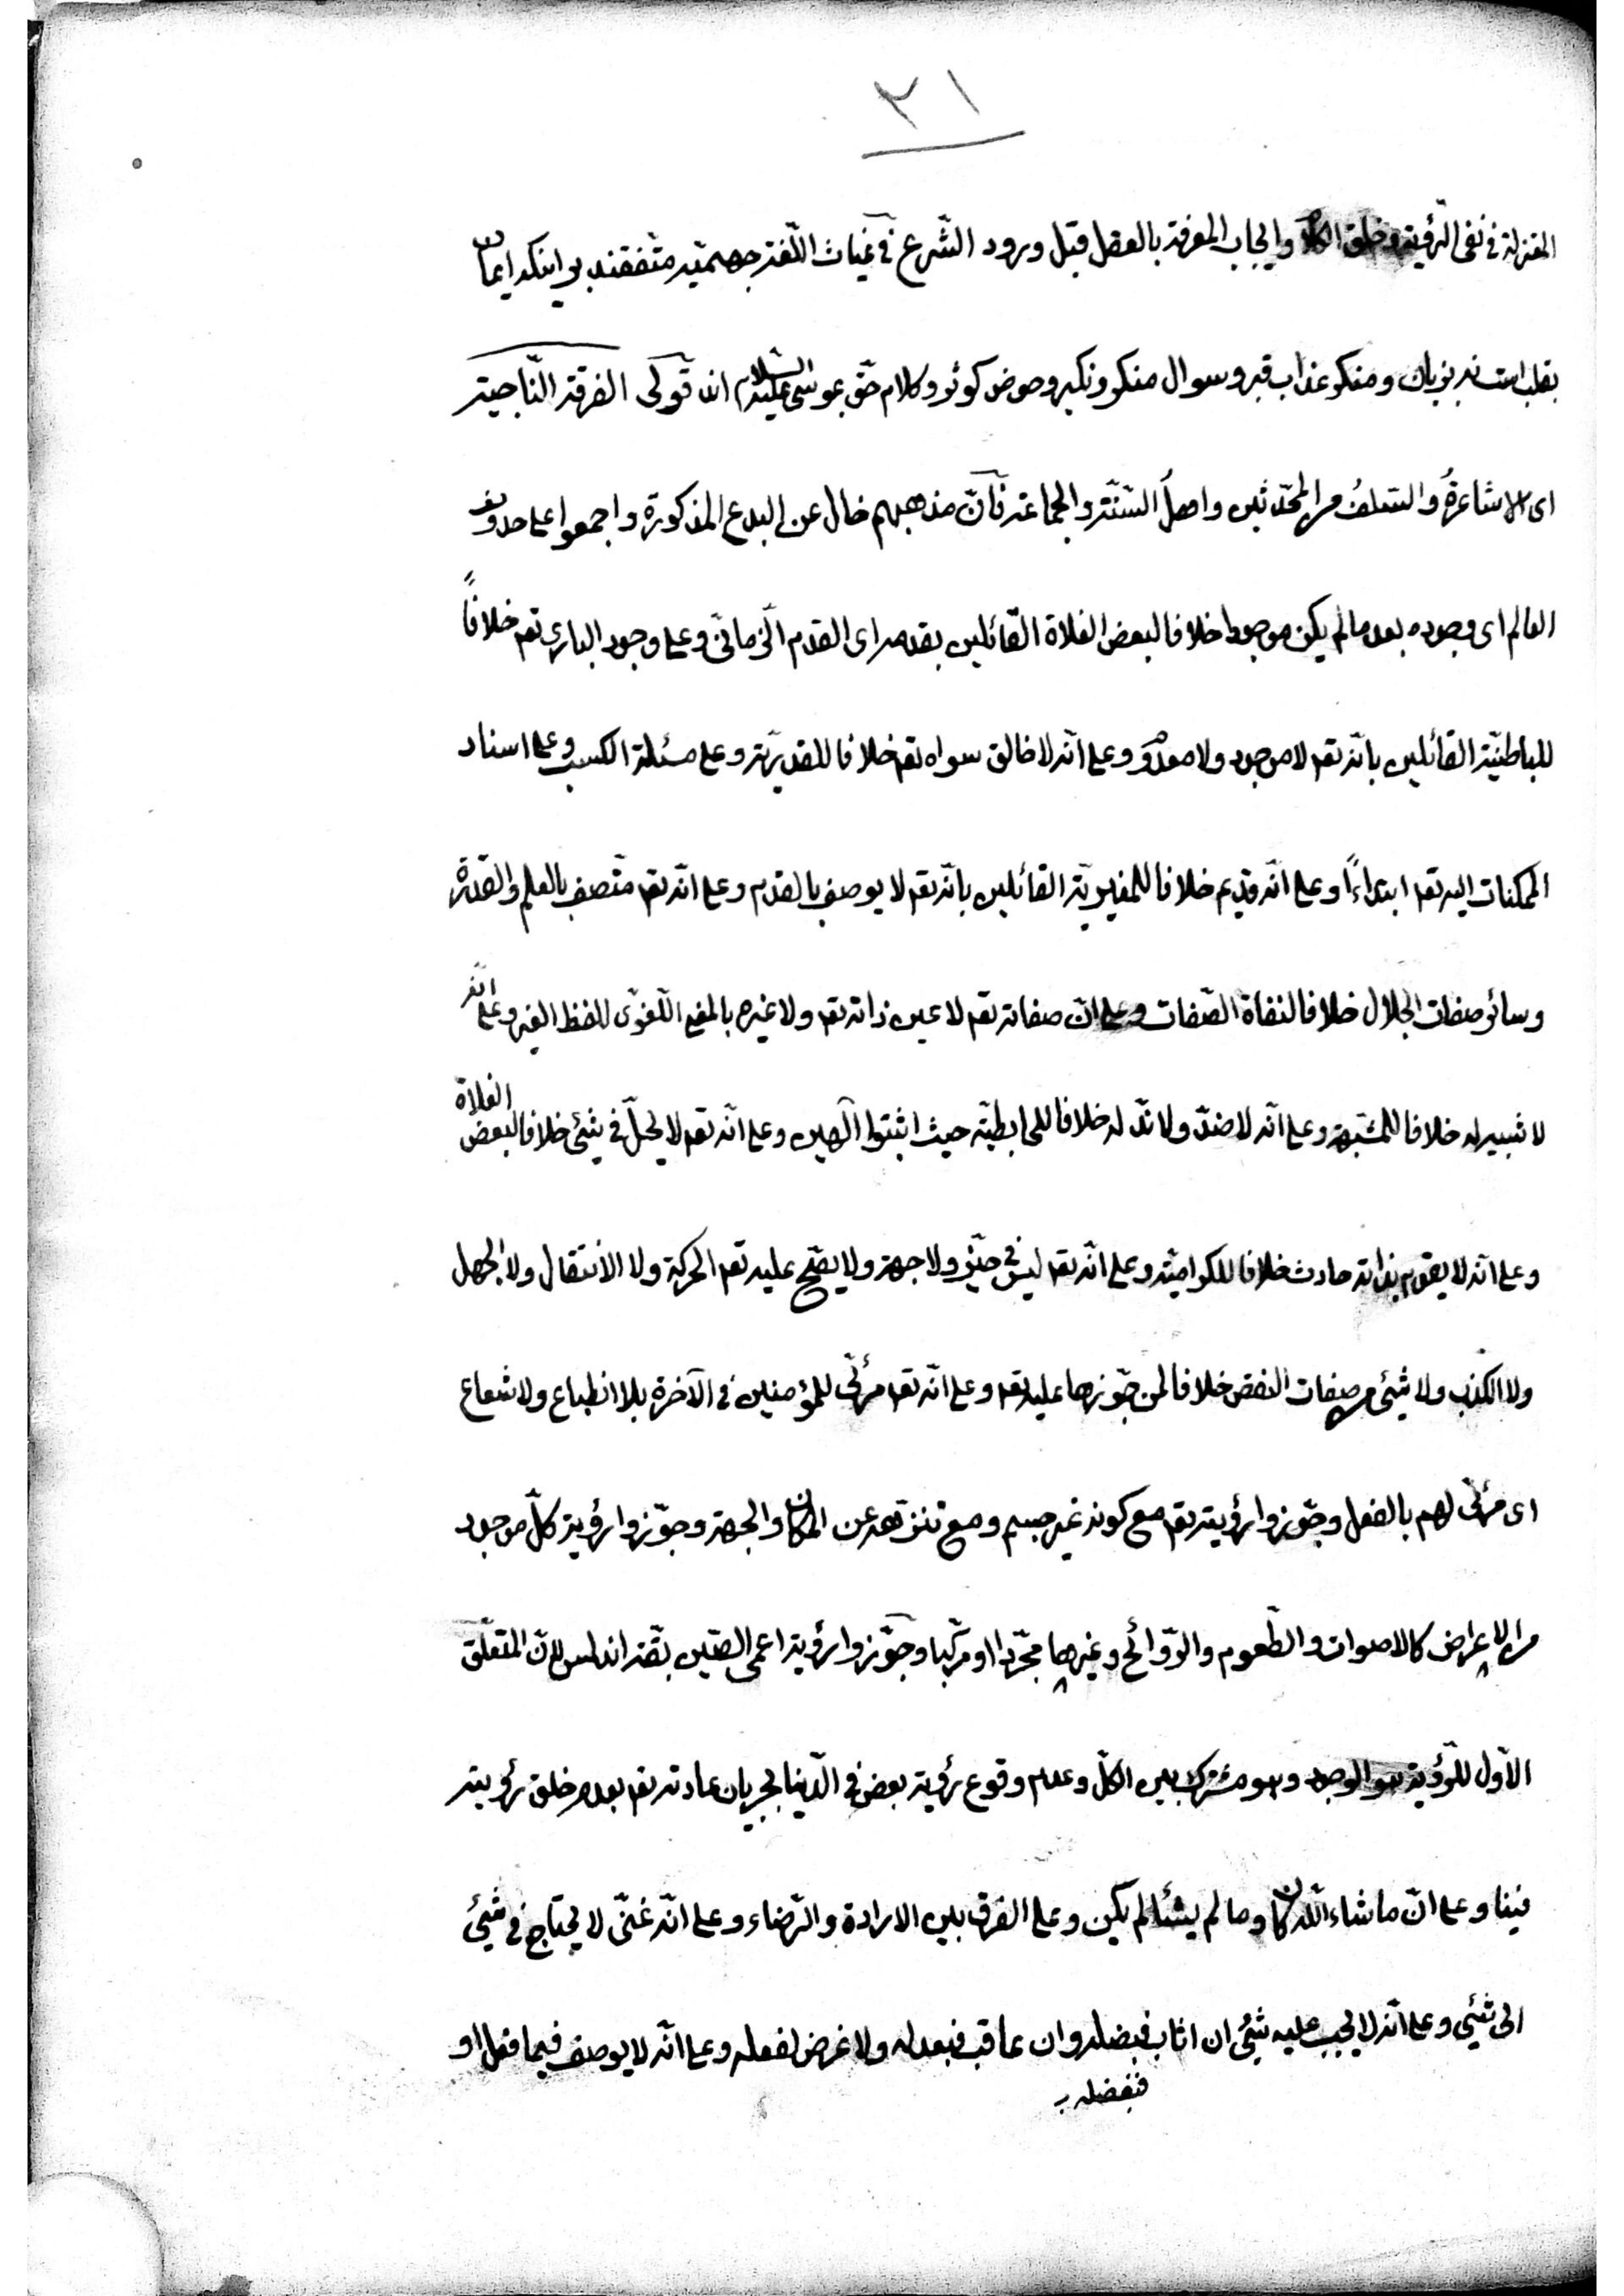 ٢١
المعتزلة فى نفى الرّؤية وخلق الكلام وايجاب المعرفة بالعقل قبل ورود الشّرع فى غياث اللّغة جهميّه متّفقند بر اينكه ايمان
بقلب است نه بزبان ومنكر عذاب قبر وسوال منكر ونكير وحوض كوثر وكلام حقّ بموسى عليه السّلام اند قولى الفرقة النّاجية
اى الاشاعرةُ والسّلفُ من المحّدثين واهلُ السّنّة والجماعة فانّ مذهبهم خال عن البدع المذكورة واجمعوا على حدوث
العالم اى وجوده بعد ما لم يكن موجودا خلافا لبعض الغلاة القائلين بقدمه اى القدم الزّمانّى وعلى وجود البارى تعه خلافاً
للباطنيّة القائلين بانّه تعه لا موجود ولا معدوم وعلى انّه لا خالق سواه تعه خلافا للقدريّة وعلى مسئلة الكسب وعلى اسناد
الممكنات اليه تعه ابتداءً وعلى انّه قديم خلافا للمغيريّة القائلين بانّه تعه لا يوصف بالقدم وعلى انّه تعه متّصف بالعلم والقدرة
وسائر صفات الجلال خلافا لنفاة الصّفات وعلى انّ صفاته تعه لا عين ذاته تعه ولا غيره بالمعنى اللّغوىّ للفظ الغير وعلى انّه
لا شبيه له خلافا للمشبّهة وعلى انّه لا ضدّ ولا ندّ له خلافا للحابطيّة حيث اثبتوا آلهين وعلى انّه تعه لا يحلّ فى شئى خلافا لبعض الغلاة
وعلى انّه لا يقوم بذاته حادث خلافا للكراميّة وعلى انّه تعه ليس فى حيّز ولا جهة ولا يصّح عليه تعه الحركة ولا الانتقال ولا الجهل
ولا الكذب ولا شئى من صفات النقص خلافا لمن جوّزها عليه تعه وعلى انّه تعه مرئىّ للمؤمنين فى الآخرة بلا انطباع ولا شعاع
اى مرئىّ لهم بالفعل وجوّزوا رؤيته تعه مع كونه غير جسم ومع تنزّهه عن المكان والجهة وجوّزوا رؤية كلّ موجود
من الاعراض كالاصوات والطّعوم والرّوائح وغيرها مجرّدا او مركّبا وجوّزوا رؤية اعمى الصّين بقّة اندلس لانّ المتعلّق
الاّول للرّؤية هو الوجود وهو مشترك بين الكلّ وعدم وقوع رؤية بعض فى الدّنيا لجريان عادته تعه بعدم خلق رؤيته
فينا وعلى انّ ما شاء اللّه كان وما لم يشأ لم يكن وعلى الفرق بين الارادة والرّضاء وعلى انّه غنىّ لا يحتاج فى شئيٍ
الى شئي وعلى انّه لا يجب عليه شئى ان اثاب فبضله وان عاقب فبعدله ولا غرض لفعله وعلى انّه لا يوصف فيما فعل او
فبفضله